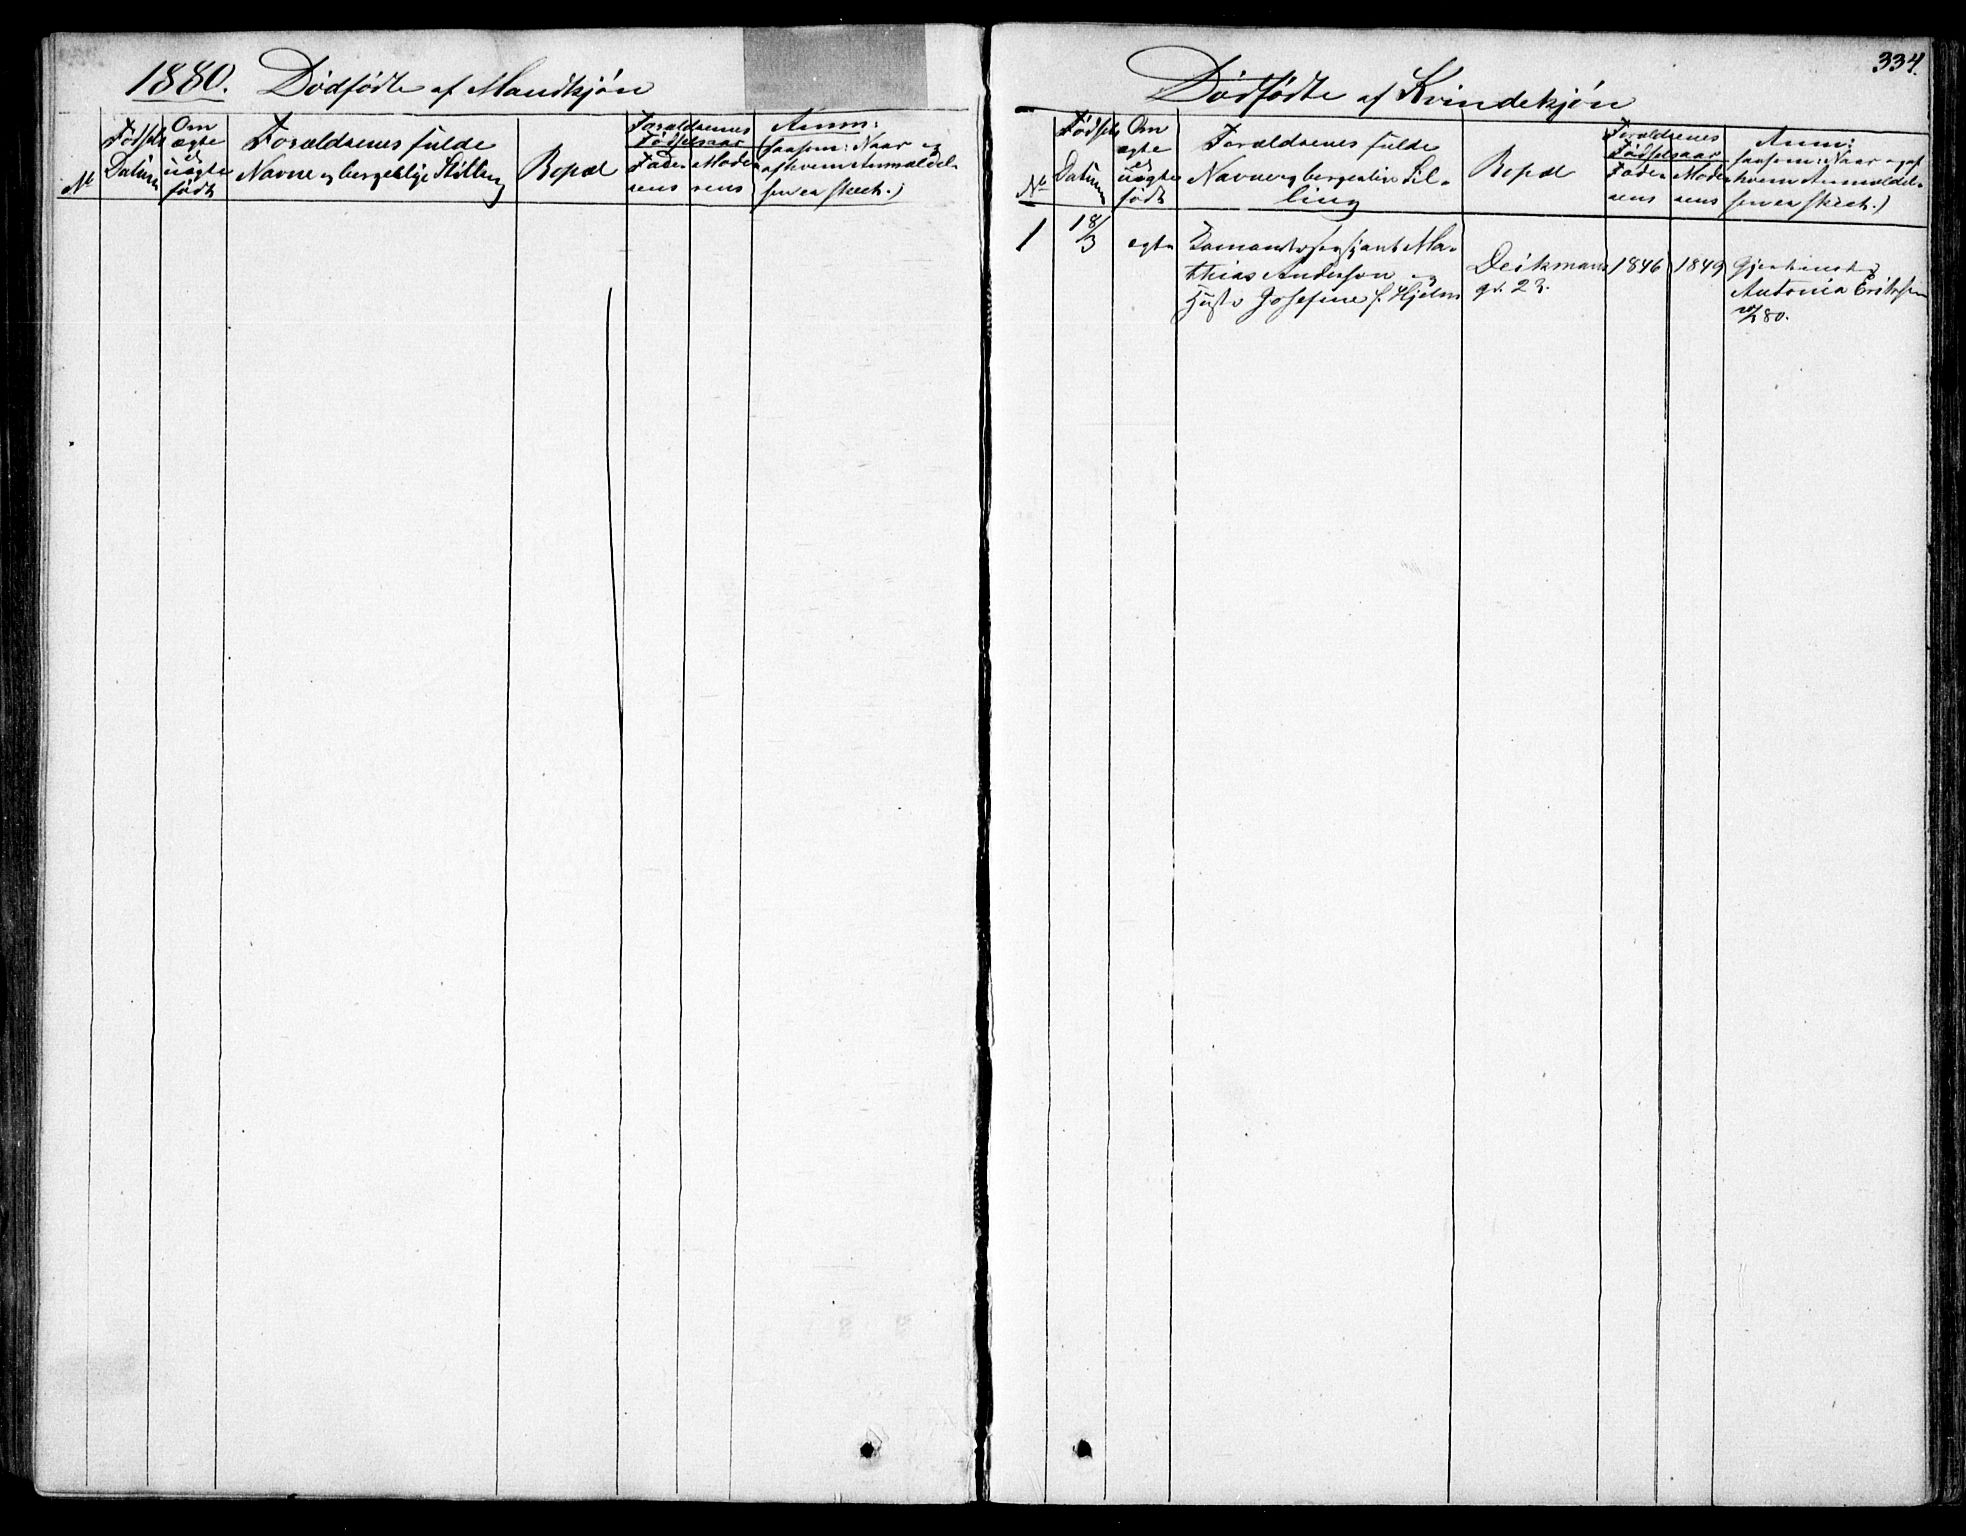 1880. Dødfødte af Mandkjøn
No
Fødsels
Datum
Om
ægte
el
uægte
født
Forældrenes fulde
Navne og borgerlige Stilling
Bopæl
Forældrenes
Fødselsaar
Fade-
rens
Mode-
rens
Anm:
(saasom: Naar og
af hvem Anmeldel-
sen er skeet.)
334.
Dødfødte af Kvindekjøn
No
Fødsels
Datum
Om
ægte
el
uægte
født
Forældrenes fulde
Navne og borgerlige Stil-
ling
Bopæl
Forældrenes
Fødselsaar
Fade-
rens
Mode-
rens
Anm:
(saasom: Naar og af
hvem Anmeldel-
sen er skeet.)
1
18/3
ægte
Ma-
thias Anderson og
Hustr Josefine f. Hjelm
Deikmans
gd. 23.
1846
1849
Antonia Eriksen
80.